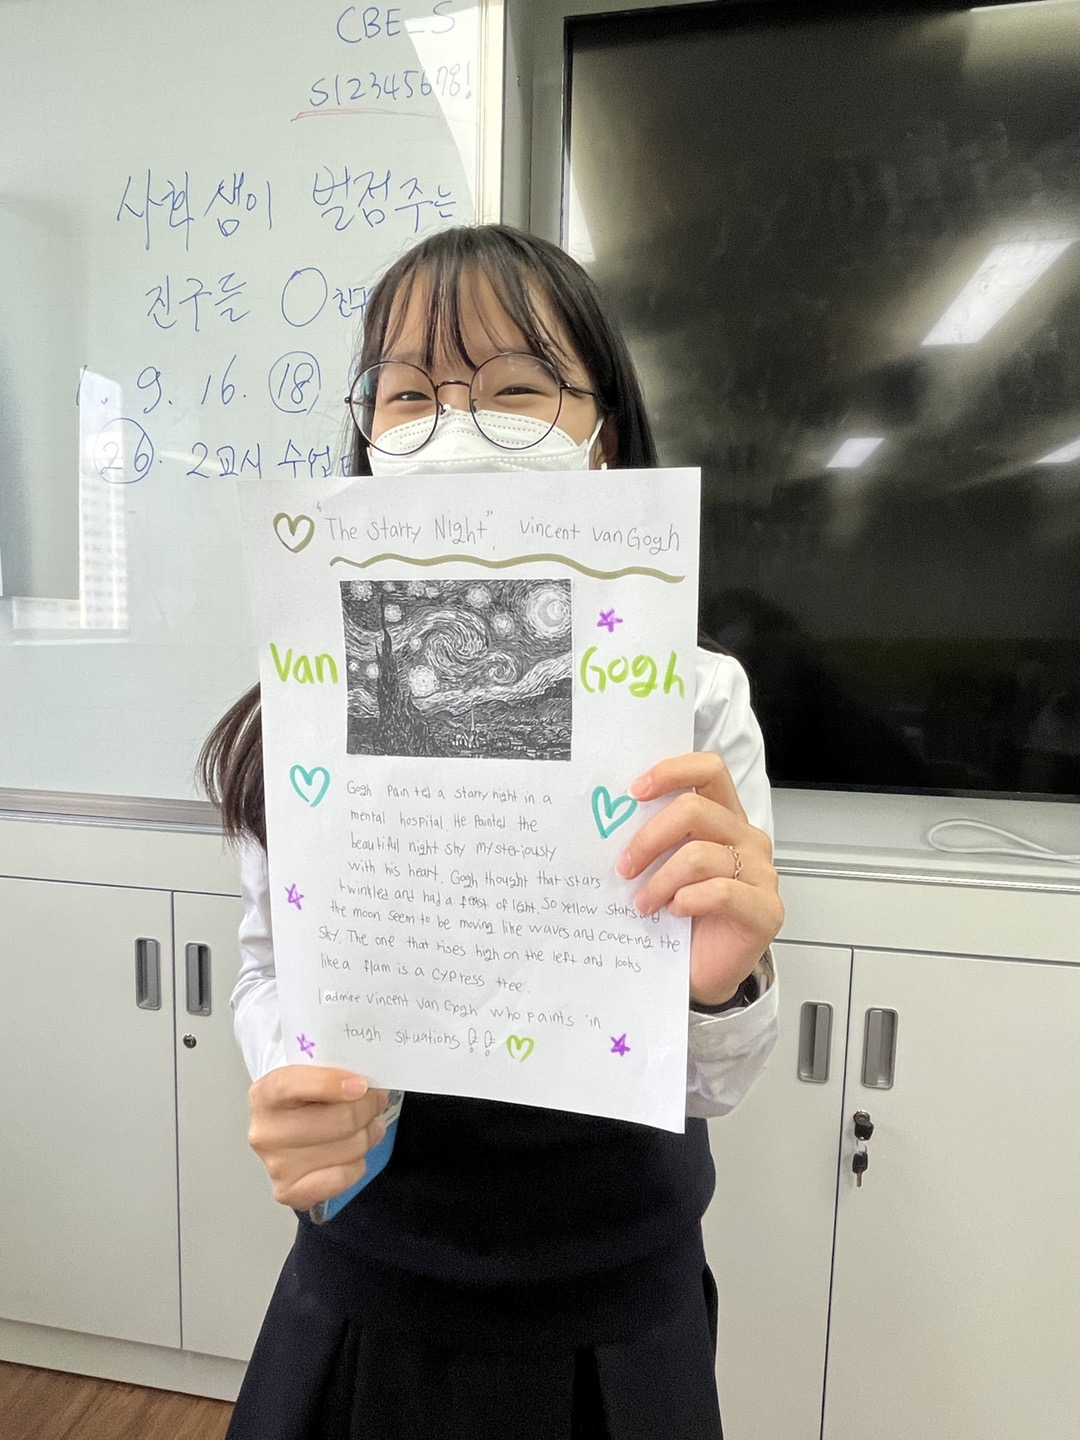 CBE_S
S12345678!
사회샘이 벌점주는
친구들 ○친구
1. 9. 16. 18
26. 2교시 수업
"The starry NIght", vincent vanGogh
Van Gogh
Gogh Painted a starry night in a
mental hospital. He painted the
beautiful night sky mysteriously
with his heart. Gogh thought that stars
twinkled and had a feast of light. So Yellow stars and
the moon seem to be moving like waves and covering the
sky. The one that rises high on the left and looks
like a flam is a cypress tree.
I admire vincent van Gogh who paints in
tough situations !!